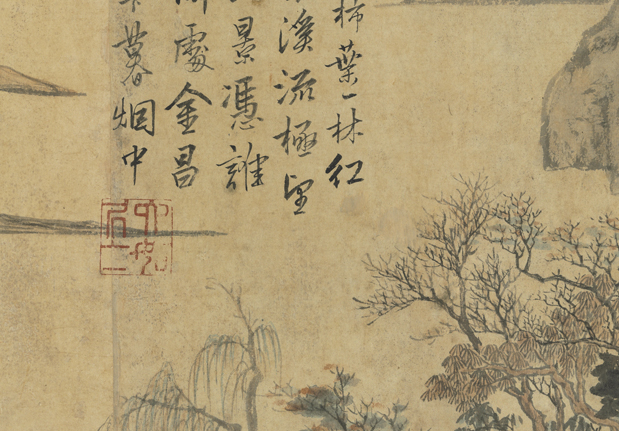 柿葉一林紅
溪流極望
景憑誰
處金昌
暮烟中